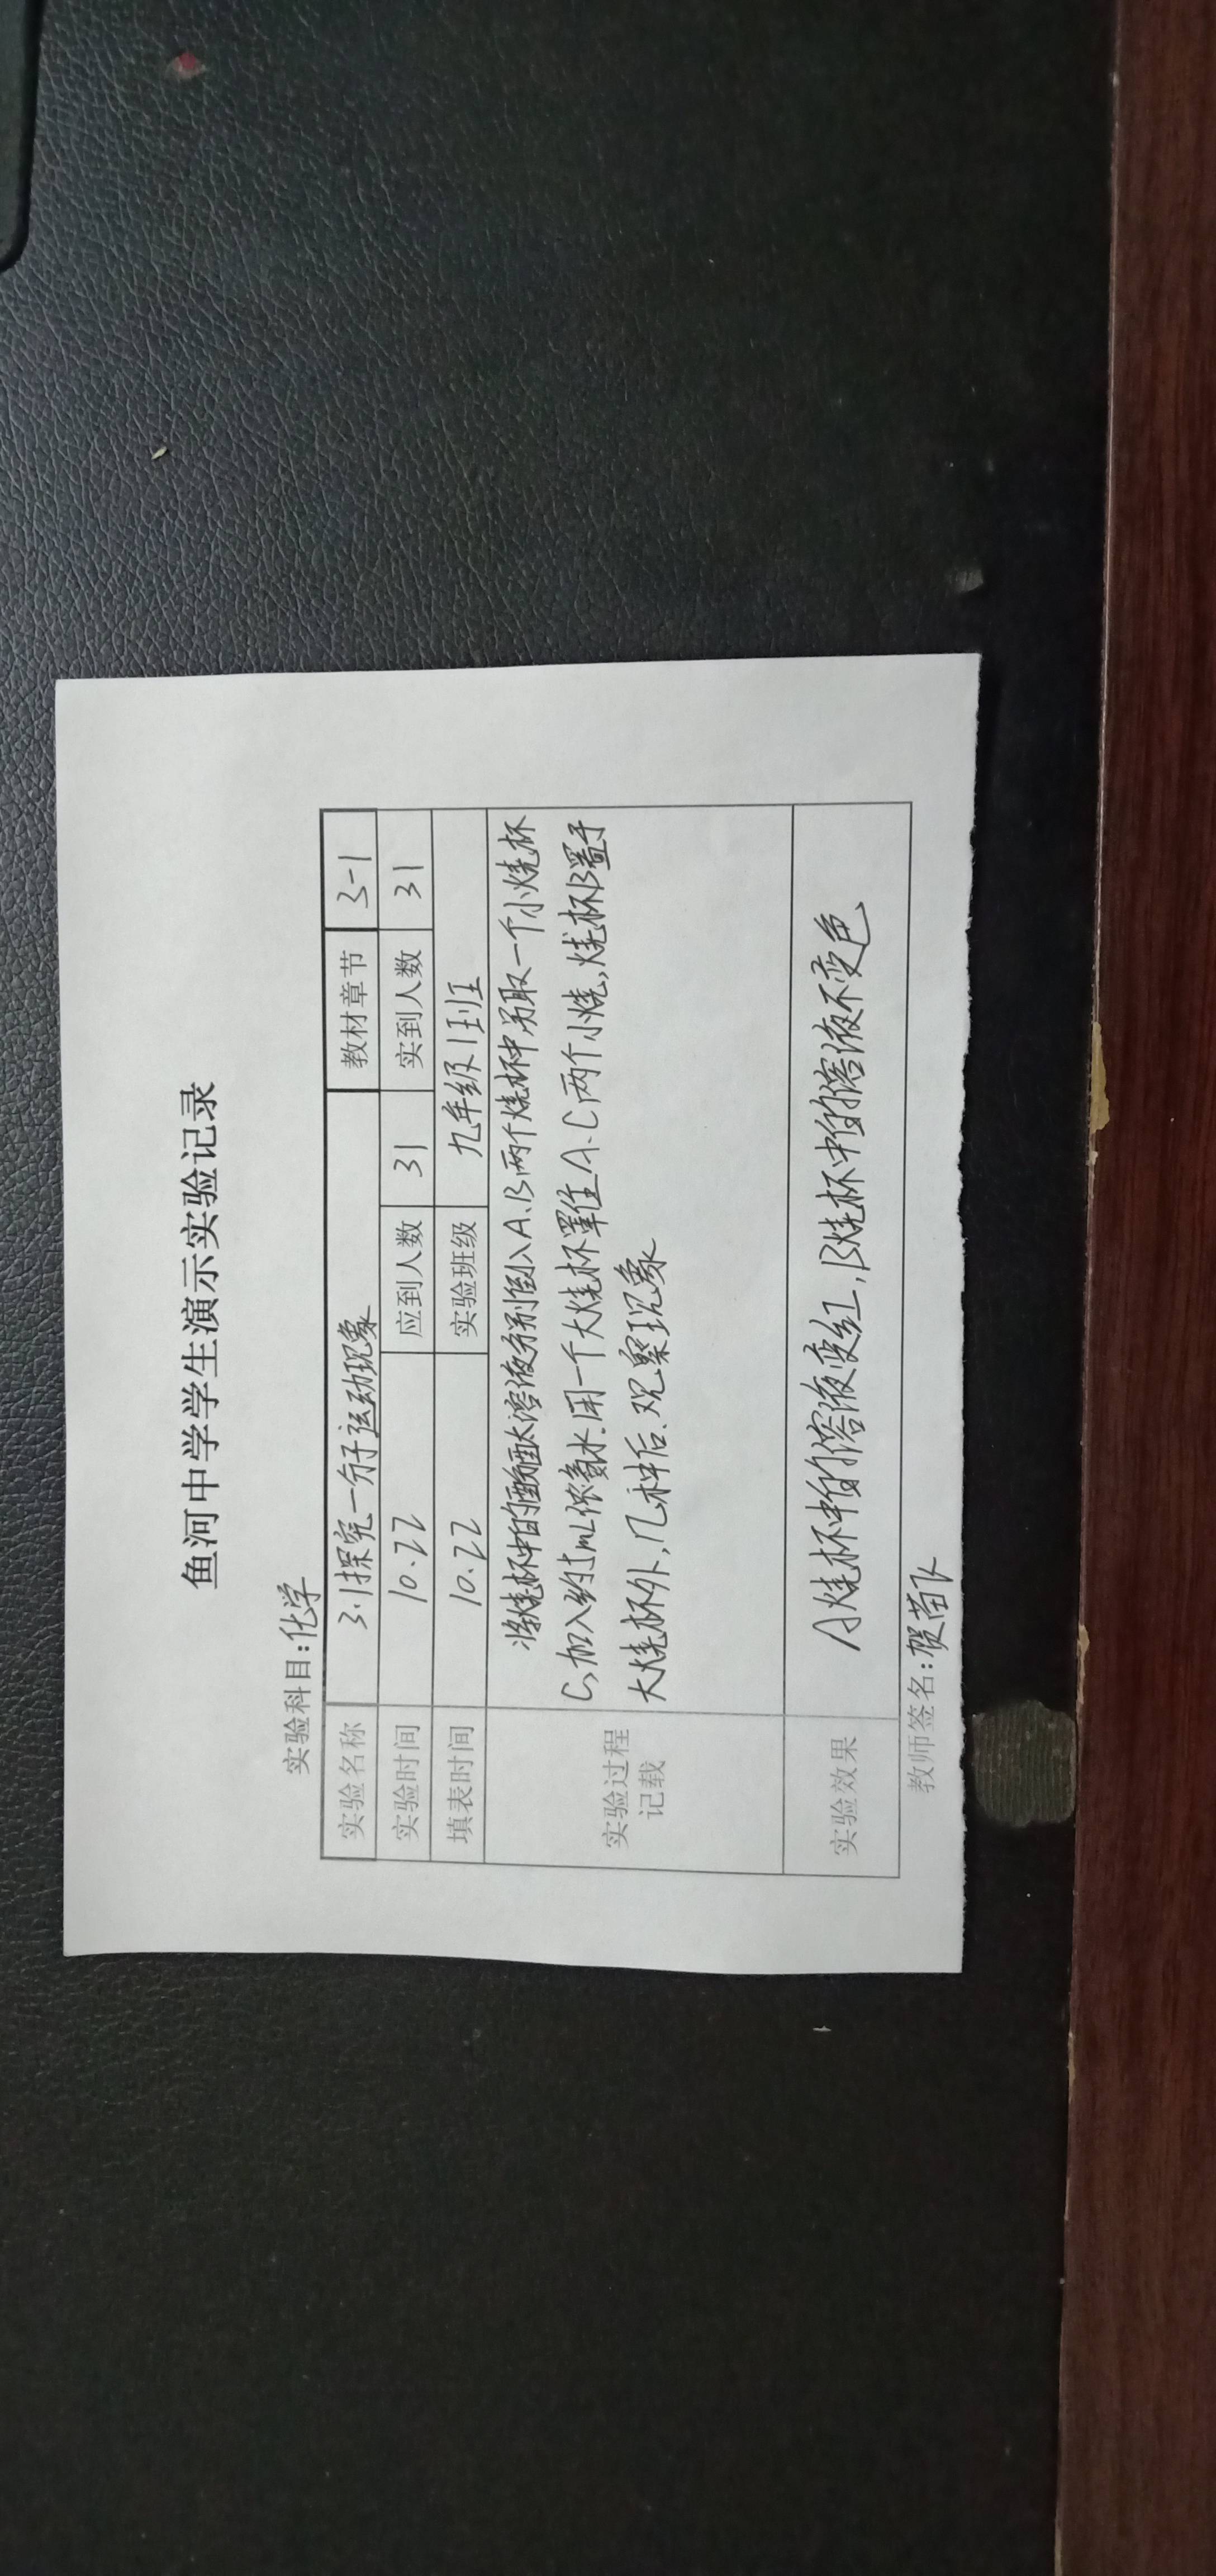 鱼河中学学生演示实验记录
实验科目:化学
实验名称 3.1探究一分子运动现象 教材章节 3-1
实验时间 10.22 应到人数 31 实到人数 31
填表时间 10.22 实验班级 九年级1班
实验过程记载
将烧杯中的酚酞溶液分别倒入A.B两个烧杯中另取一个小烧杯
C,加入约5mL浓氨水.用一个大烧杯罩住A.C两个小烧,烧杯B置于
大烧杯外,几种后.观察现象
实验效果 A烧杯中的溶液变红,B烧杯中的溶液不变色
教师签名:贺苗